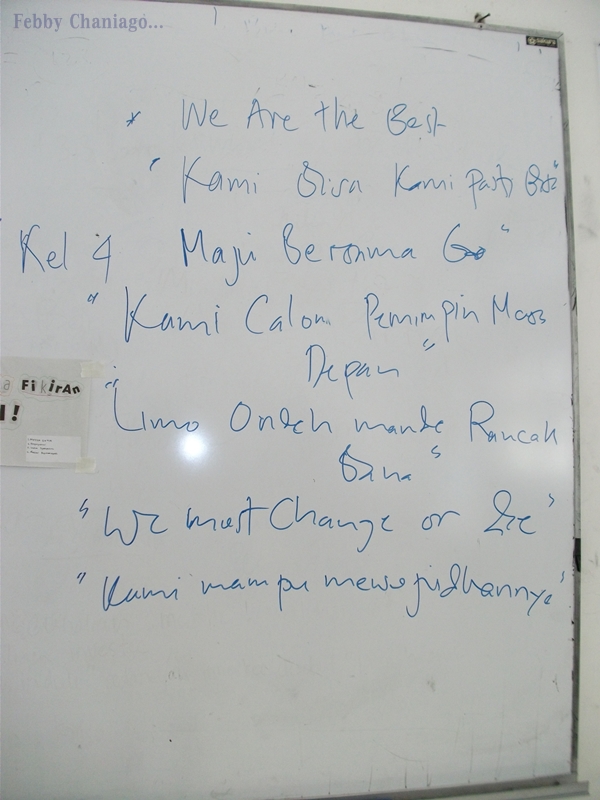 Febby Chaniago...
sakura
* We Are the Best
" Kami Bisa Kami Pasti Bisa"
Kel 4 Maju Bersama Go "
" Kami Calon Pemimpin Masa
Depan "
FikirAn
!
" Limo Ondeh mande Rancak
Bana "
" We must Change or Die "
" Kami mampu mewujudkannya "